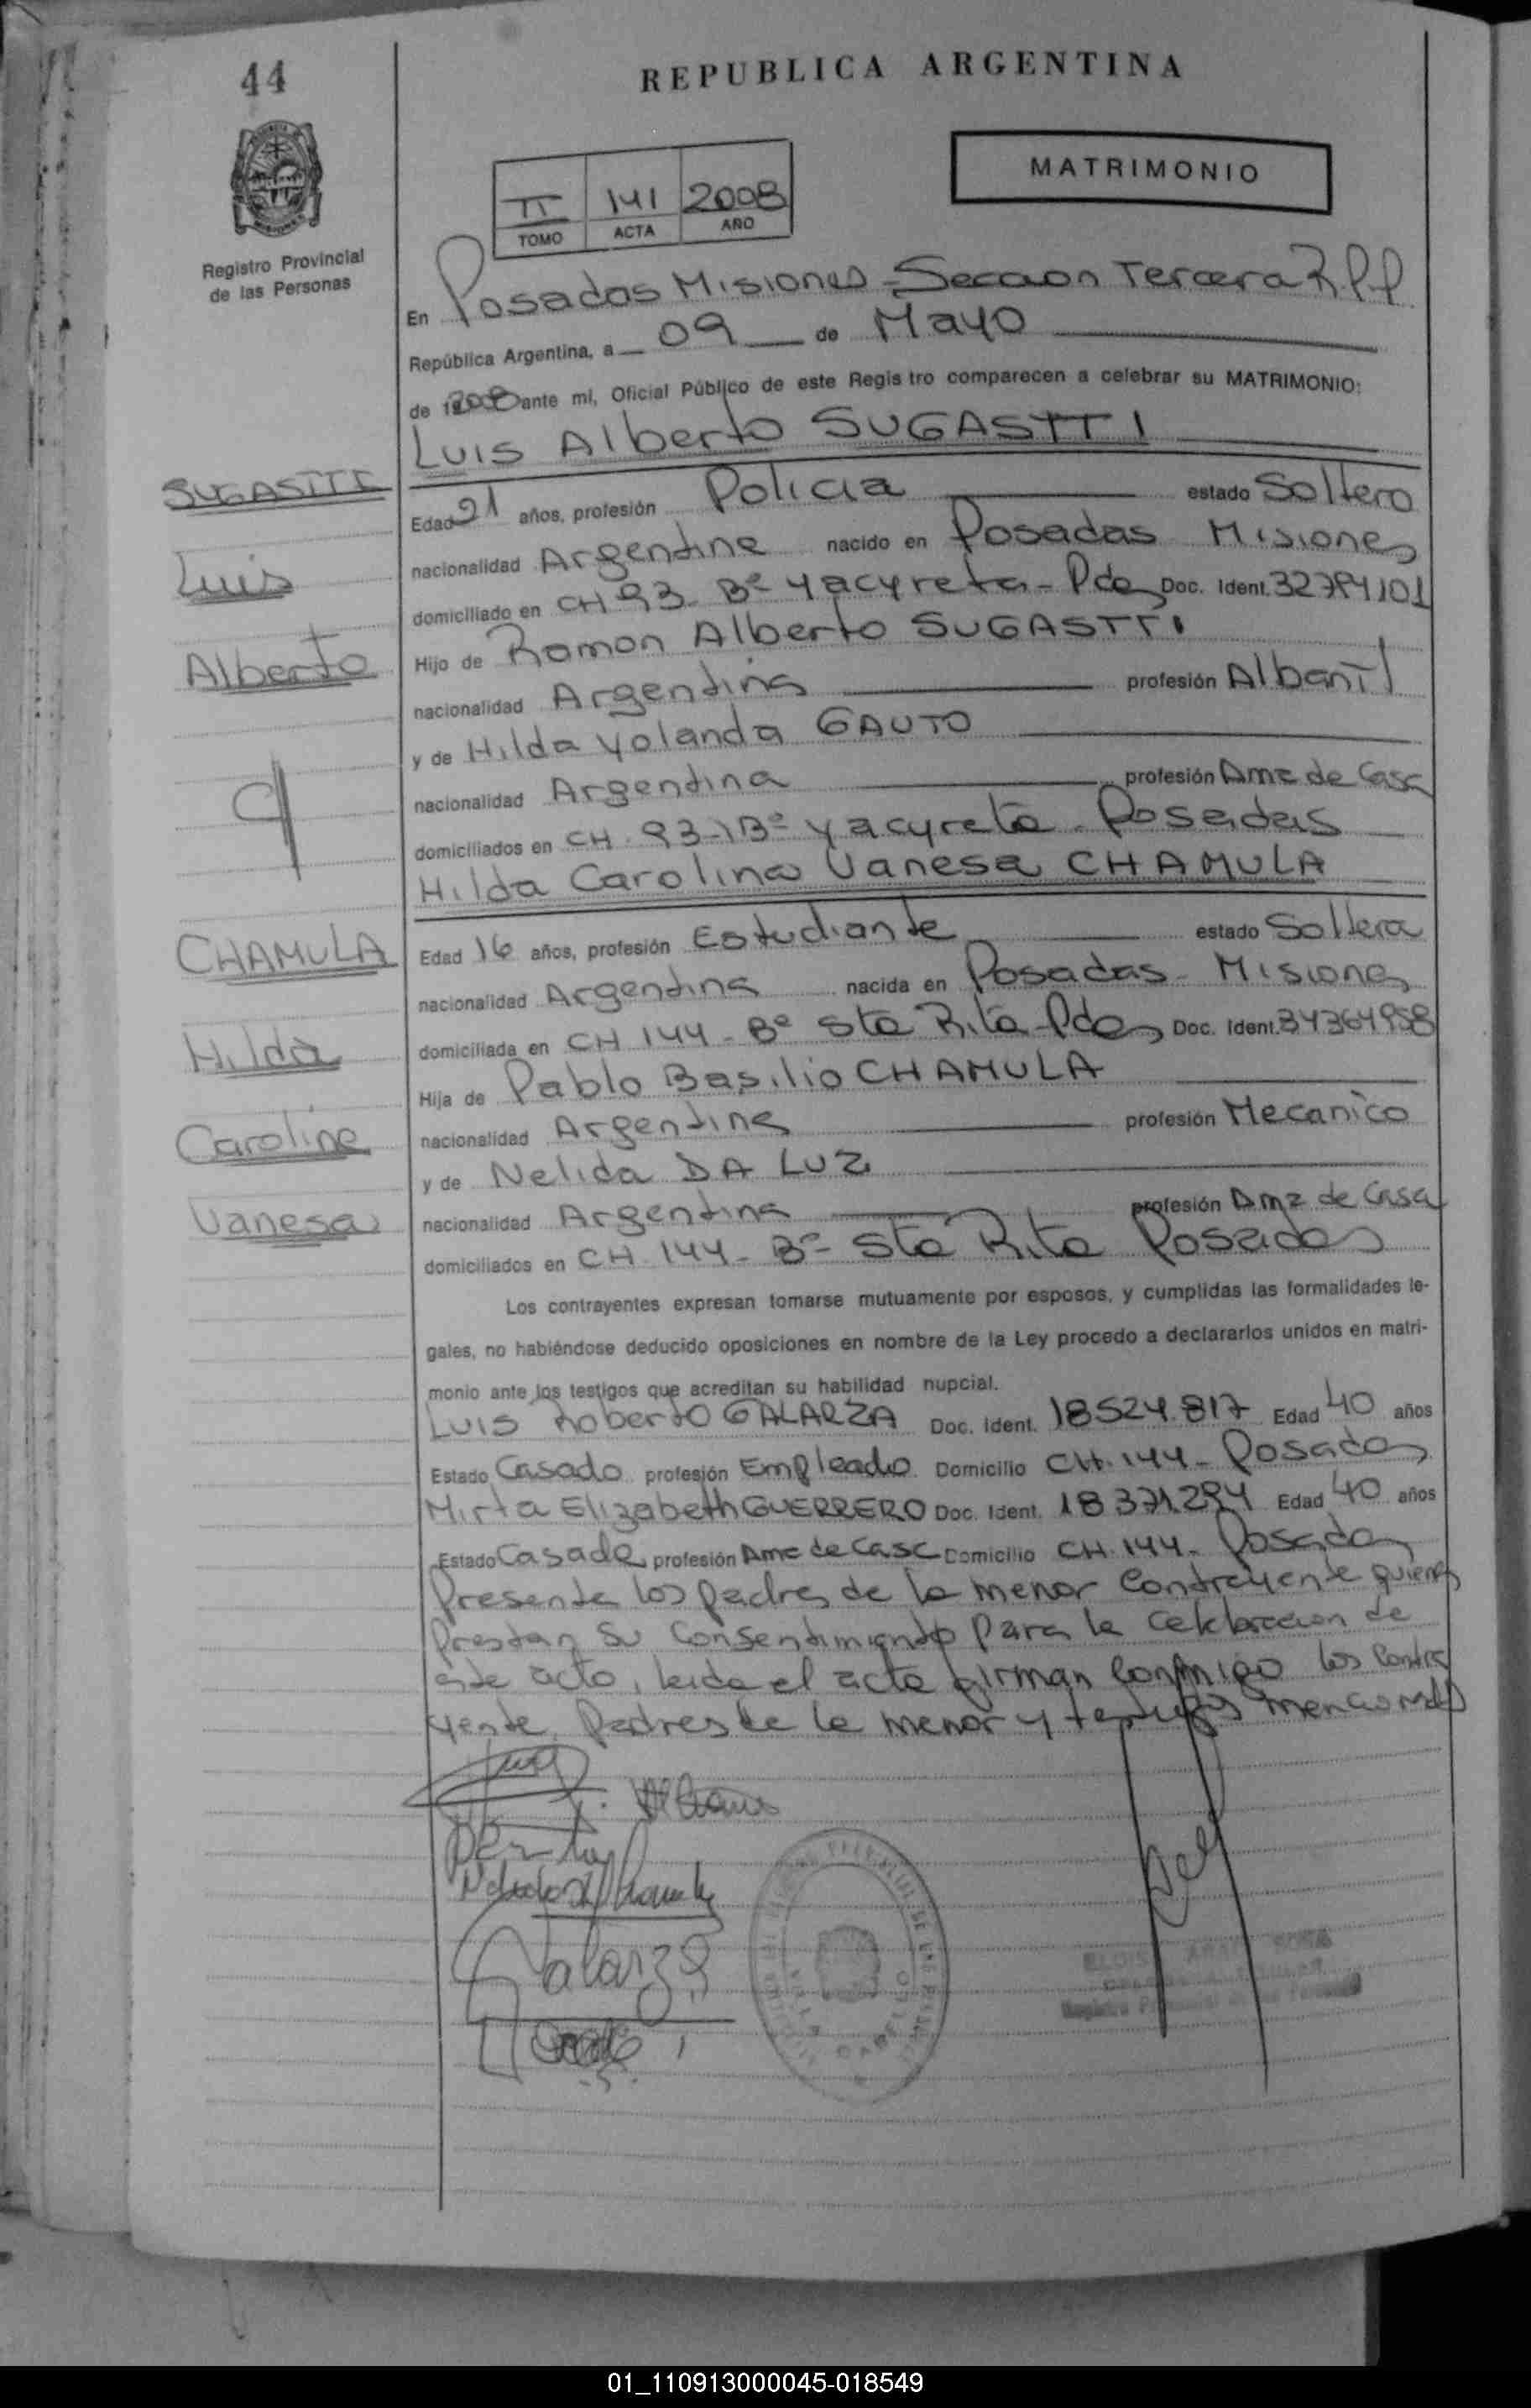 44
REPUBLICA ARGENTINA
MATRIMONIO
II 141 2008
TOMO ACTA AÑO
Registro Provincial
de las Personas
En Posadas Misiones - Seccion Tercera R.P.P
República Argentina, a 09 de Mayo
de 2008 ante mí, Oficial Público de este Registro comparecen a celebrar su MATRIMONIO:
Luis Alberto SUGASTTI
SUGASTTI
Edad 21 años, profesión Policia estado Soltero
nacionalidad Argentina nacido en Posadas Misiones
Luis
domiciliado en CH 93 - Bº Yacyreta - Pdas Doc. Ident. 32784101
Hijo de Ramon Alberto SUGASTTI
Alberto
nacionalidad Argentina profesión Albañil
y de Hilda Yolanda GAUTO
nacionalidad Argentina profesión Ama de Casa
domiciliados en CH. 93 - Bº Yacyreta - Posadas
Hilda Carolina Vanesa CHAMULA
CHAMULA
Edad 16 años, profesión Estudiante estado Soltera
nacionalidad Argentina nacida en Posadas - Misiones
Hilda
domiciliada en CH 144 - Bº Sta Rita - Pdas Doc. Ident. 34364958
Hija de Pablo Basilio CHAMULA
Carolina
nacionalidad Argentina profesión Mecanico
y de Nelida DA LUZ
Vanesa
nacionalidad Argentina profesión Ama de Casa
domiciliados en CH. 144 - Bº Sta Rita Posadas
Los contrayentes expresan tomarse mutuamente por esposos, y cumplidas las formalidades le-
gales, no habiéndose deducido oposiciones en nombre de la Ley procedo a declararlos unidos en matri-
monio ante los testigos que acreditan su habilidad nupcial.
Luis Roberto GALARZA Doc. Ident. 18524.817 Edad 40 años
Estado Casado profesión Empleado Domicilio CH. 144 - Posadas
Mirta Elizabeth GUERRERO Doc. Ident. 18371.294 Edad 40 años
Estado Casada profesión Ama de Casa Domicilio CH. 144 - Posadas
Presente los padres de la menor Contrayente quienes
Prestan su Consentimiento para la celebracion de
este acto, leida el acta firman conmigo los Contra
yente, Padres de la menor y testigos mencionados
Galarza
01_110913000045-018549